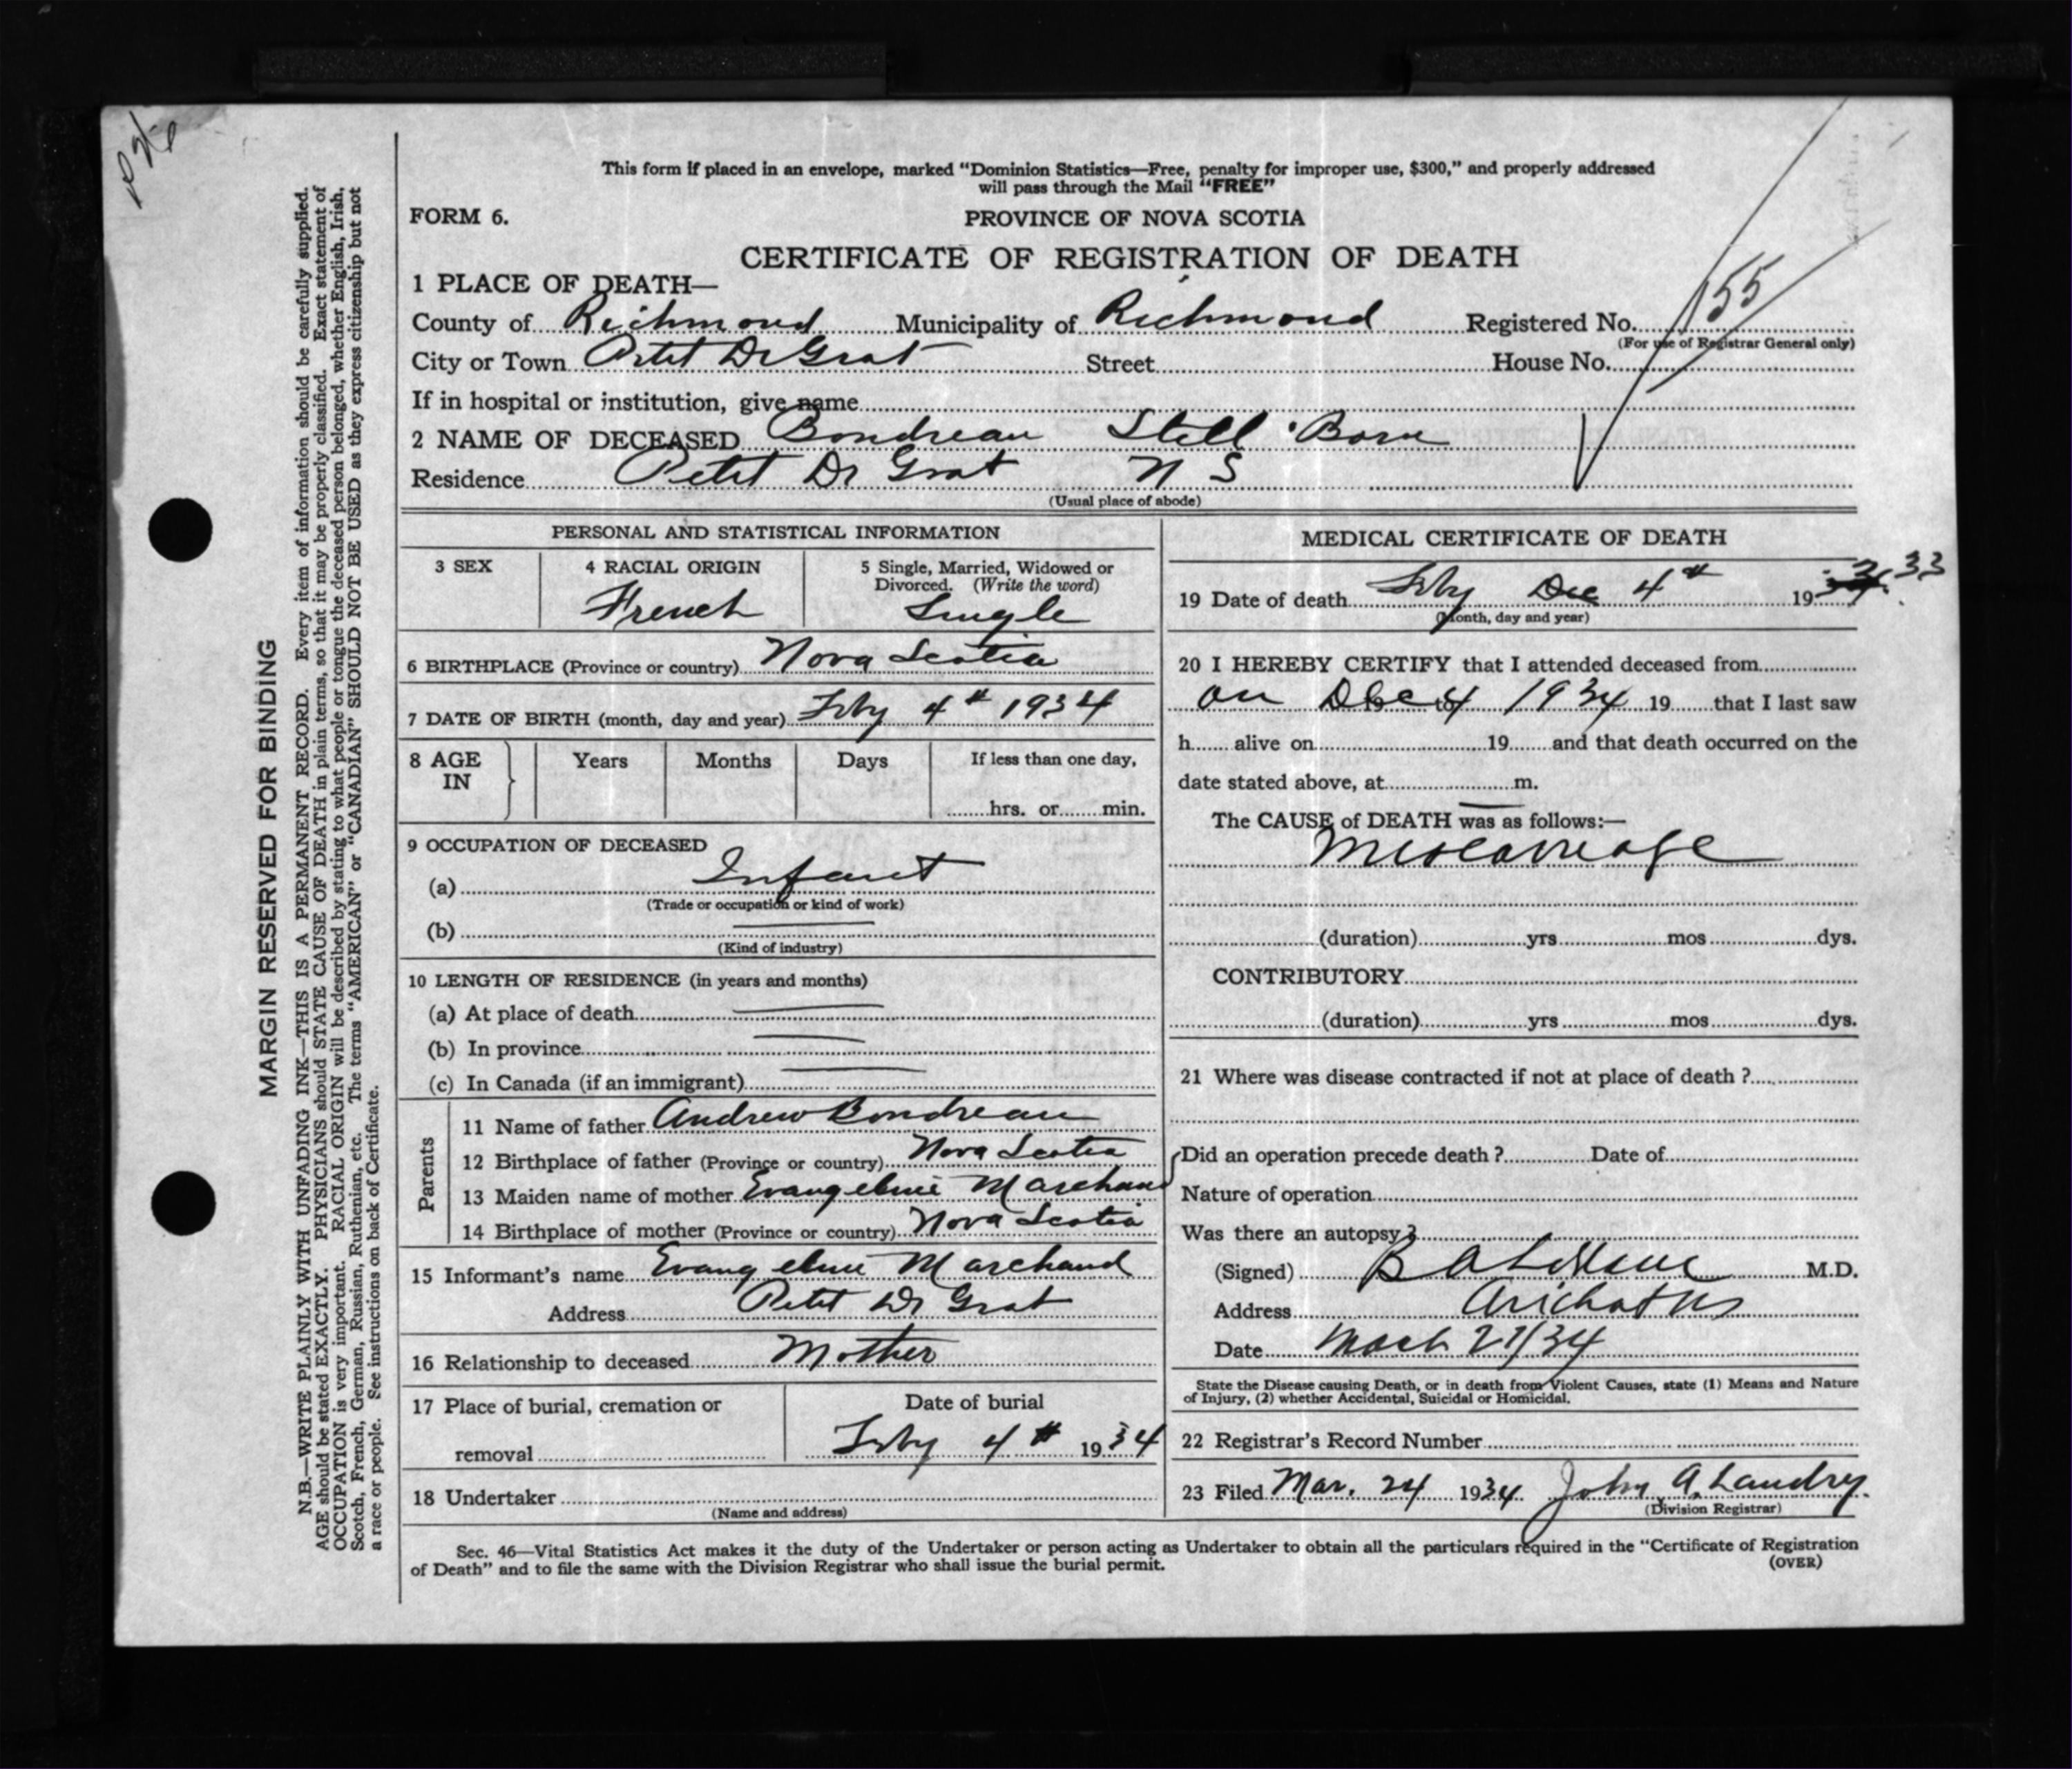 This form if placed in an envelope, marked “Dominion Statistics—Free, penalty for improper use, $300,” and properly addressed
will pass through the Mail “FREE”
FORM 6.
PROVINCE OF NOVA SCOTIA
CERTIFICATE OF REGISTRATION OF DEATH
1 PLACE OF DEATH—
County of Richmond Municipality of Richmond Registered No. 155
(For use of Registrar General only)
City or Town Petit De Grat Street House No.
If in hospital or institution, give name
2 NAME OF DECEASED Boudreau Still Born
Residence Petit De Grat N S
(Usual place of abode)
PERSONAL AND STATISTICAL INFORMATION
3 SEX
4 RACIAL ORIGIN French
5 Single, Married, Widowed or
Divorced. (Write the word)
Single
6 BIRTHPLACE (Province or country) Nova Scotia
7 DATE OF BIRTH (month, day and year) Feby 4th 1934
8 AGE IN Years Months Days If less than one day,
hrs. or min.
9 OCCUPATION OF DECEASED
(a) Infant
(Trade or occupation or kind of work)
(b)
(Kind of industry)
10 LENGTH OF RESIDENCE (in years and months)
(a) At place of death
(b) In province
(c) In Canada (if an immigrant)
Parents
11 Name of father Andrew Boudreau
12 Birthplace of father (Province or country) Nova Scotia
13 Maiden name of mother Evangeline Marchand
14 Birthplace of mother (Province or country) Nova Scotia
15 Informant’s name Evangeline Marchand
Address Petit De Grat
16 Relationship to deceased Mother
17 Place of burial, cremation or
removal
Date of burial
Feby 4th 1934
18 Undertaker
(Name and address)
MEDICAL CERTIFICATE OF DEATH
19 Date of death Feby Dec 4th 19 34 33
(Month, day and year)
20 I HEREBY CERTIFY that I attended deceased from
on Dec 4 1934 19 that I last saw
h alive on 19 and that death occurred on the
date stated above, at m.
The CAUSE of DEATH was as follows:—
Miscarriage
(duration) yrs mos dys.
CONTRIBUTORY
(duration) yrs mos dys.
21 Where was disease contracted if not at place of death ?
Did an operation precede death ? Date of
Nature of operation
Was there an autopsy ?
(Signed) B A LeBlanc M.D.
Address Arichat NS
Date March 27/34
State the Disease causing Death, or in death from Violent Causes, state (1) Means and Nature
of Injury, (2) whether Accidental, Suicidal or Homicidal.
22 Registrar’s Record Number
23 Filed Mar. 24 1934 John A. Landry.
(Division Registrar)
Sec. 46—Vital Statistics Act makes it the duty of the Undertaker or person acting as Undertaker to obtain all the particulars required in the “Certificate of Registration
of Death” and to file the same with the Division Registrar who shall issue the burial permit.
(OVER)
MARGIN RESERVED FOR BINDING
N.B.—WRITE PLAINLY WITH UNFADING INK—THIS IS A PERMANENT RECORD. Every item of information should be carefully supplied.
AGE should be stated EXACTLY. PHYSICIANS should STATE CAUSE OF DEATH in plain terms, so that it may be properly classified. Exact statement of
OCCUPATION is very important. RACIAL ORIGIN will be described by stating to what people or tongue the deceased person belonged, whether English, Irish,
Scotch, French, German, Russian, Ruthenian, etc. The terms “AMERICAN” or “CANADIAN” SHOULD NOT BE USED as they express citizenship but not
a race or people. See instructions on back of Certificate.